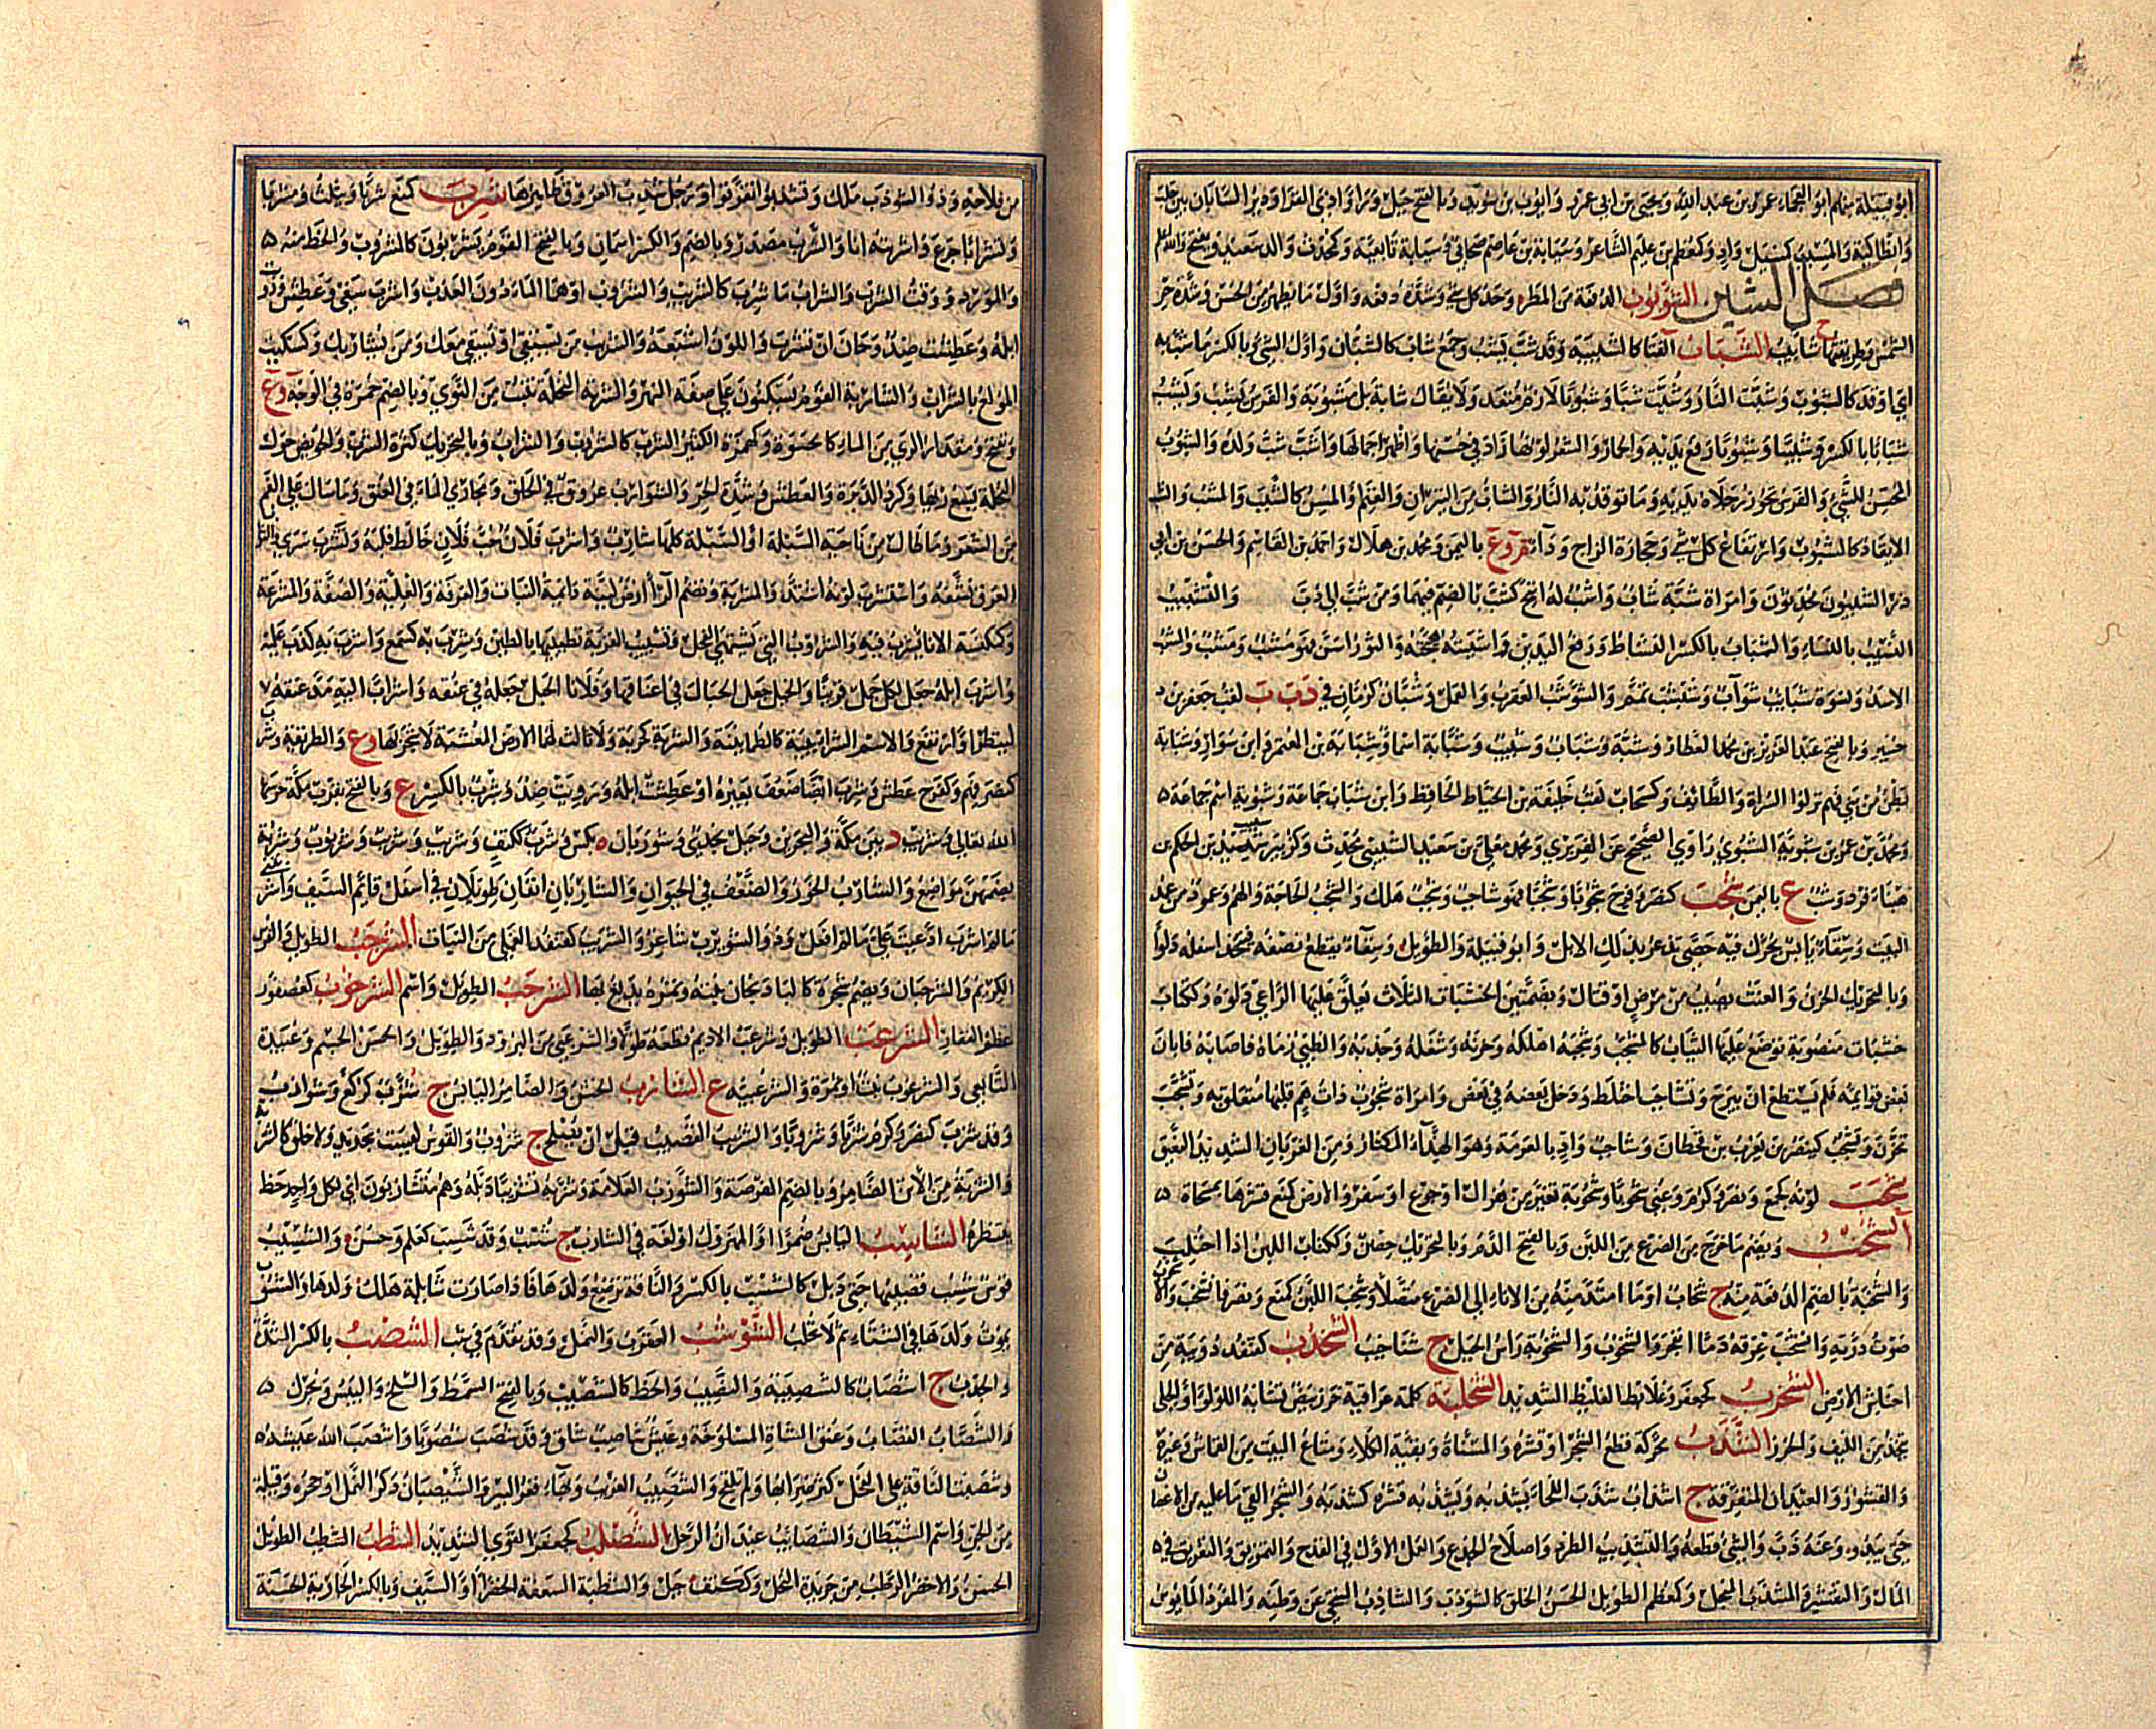 ابو قبيلة منهم ابو العجماء عمرو بن عبد الله ويحيى بن ابي عمرو وايوب بن سويد وبالفتح جبل وراء وادي القرا ودير السابان بين حلب
وانطاكية والمسيب كمسيل واد وكمعظم بن علس الشاعر وسيابة بن عاصم صحابي وسيابة تابعية وكمحدث والد سعيد ويفتح والله اعلم
فصل الشين الشؤبوب الدفعة من المطر وحد كل شي وشدة دفعه واول ما يظهر من الحسن وشدة حر
الشمس وطريقتها ج شآبيب الشباب الفتا كالشبيبة وقد شب يشب وجمع شاب كالشبان واول الشي وبالكسر ما شب به
اي اوقد كالشبوب وشبت النار وشبت شبا وشبوبا لازم متعد ولا يقال شابة بل مشبوبة والفرس يشب ويشب
شبابا بالكسر وشبيبا وشبوبا رفع يديه والخمار والشعر لونها زاد في حسنها واظهر جمالها واشب شب ولده والشبوب
المحسن للشي والفرس تجوز رجلاه يديه وما توقد به النار والشاب من الثيران والغنم او المسن كالشبب والمشب والشب
الايقاد كالشبوب وارتفاع كل شي وحجارة الزاج وداء م وع باليمن ومحمد بن هلال واحمد بن القاسم والحسن بن ابي
ذر الشبيون محدثون وامراة شبة شابة واشب له اتيح كشب بالضم فيهما ومن شب الى دب والتشبيب
النسيب بالنساء والشباب بالكسر النشاط ورفع اليدين واشببته هيجته والثور اسن فهو مشب ومشب والشب
الاسد ونسوة شبايب شواب وشبشب تمم والشوشب العقرب والقمل وشبان كرمان في د ب ب لقب جعفر بن
حسير وبالفتح عبد العزيز بن محمد العطار وشبة وشباب وشبيب وشبابة اسما وشبابة بن المعتمر وابن سوار وشبابة
بطن من بني فهم نزلوا السراة والطايف وكسحاب لقب خليفة بن الخياط الحافظ وابن شباب جماعة وشبوية اسم جماعة
ومحمد بن عمر بن شبوية الشبوي راوي الصحيح عن الفربري ومحمد معلى بن سعيد الشبيبي محدث وكزبير شبيب بن الحكم بن
ميناء فرد وشب ع باليمن شجب كنصر وفرح شجوبا وشجبا فهو شاجب وشجب هلك والشجب الحاجة والهم وعمود من عمد
البيت وسقاء يابس يحرك فيه حصى تذعر بذلك الابل وابو قبيلة والطويل وسقاء يقطع نصفه فيتخذ اسفله دلوا
وبالتحريك الحزن والعنت يصيب من مرض او قتال وبضمتين الخشبات الثلاث يعلق عليها الراعي دلوه وككتاب
خشبات منصوبة توضع عليها الثياب كالمشجب وشجبه اهلكه وحزنه وشغله وجذبه والظبي رماه فاصابه فابان
بعض قوايمه فلم يستطع ان يبرح وتشاجب اختلط ودخل بعضه في بعض وامراة شجوب ذات هم قلبها متعلق به وتشجب
تحزن ويشجب كينصر بن يعرب بن قحطان وشاجب واد بالعرمة وهو الهذاء المكثار ومن الغربان الشديد النعيق
شحب لونه كجمع ونصر وكرم وعني شحوبا وشحوبة تغير من هزال او جوع او سفر والارض كمنع قشرها بمسحاة
الشخب ويضم ما خرج من الضرع من اللبن وبالفتح الدم وبالتحريك حصن وككتاب اللبن اذا احتلب
والشخبة بالضم الدفعة منه ج شخاب او ما امتد منه من الاناء الى الضرع متصلا وشخب اللبن كمنع ونصر فانشخب والا
صوت درته وانشخب عرقه دما انفجر والشنخوب والشنخوبة راس الجبل ج شناخيب الشخدب كقنفد دويبة من
احناش الارض الشخزب كجعفر وعلابط الغليظ الشديد الشخلبة كلمة عراقية خرز بيض تشابه اللولوا والحلي
يتخذ من الليف والخرز الشذب محركة قطع الشجر او قشره والمسناة وبقية الكلاء ومتاع البيت من القماش وغيره
والقشور والعيدان المتفرقة ج اشذاب شذب اللحاء يشذبه ويشذبه قشره كشذبه والشجر القى ما عليه من الاغصان
حتى يبدو وعنه ذب والشي قطعه والتشذيب الطرد واصلاح الجذع والعمل الاول في القدح والتمزيق والتفريق في
المال والتقشير والمشذب المنجل وكمعظم الطويل الحسن الخلق كالشوذب والشاذب المتنحي عن وطنه والمفرد المايوس
من فلاحه وذو الشوذب ملك وتشذبوا تفرقوا ورجل شذب العروق ظاهرها شرب كسمع شربا ويثلث ومشربا
وتشرابا جرع واشربته انا والشرب مصدر وبالضم والكسر اسمان وبالفتح القوم يشربون كالشروب والحظ منه
والمورد ووقت الشرب والشراب ما شرب كالشريب والشروب او هما الماء دون العذب واشرب سقى وعطش وروت
ابله وعطشت ضد وحان ان تشرب واللون اشبعه والشريب من يستقي او يسقى معك ومن يشاربك وكسكيت
المولع بالشراب والشاربة القوم يسكنون على ضفة النهر والشربة النخلة تنبت من النوى وبالضم حمرة في الوجه وع
ويفتح ومقدار الري من الماء كالحسوة وكهمزة الكثير الشرب كالشروب والشراب وبالتحريك كثرة الشرب والحويض حول
النخلة يسع ريها وكرد الدبرة والعطش وشدة الحر والشوارب عروق في الحلق ومجاري الماء في العنق وما سال على الفم
من الشعر وما طال من ناحية السبلة او السبلة كلها شارب واشرب فلان حب فلان خالط قلبه وتشرب سرى في الثوب
العرق نشفه واستشرب لونه اشتد والمشربة وتضم الرا ارض لينة دايمة النبات والغرفة والعلية والصفة والمشرعة
وكمكنسة الاناء يشرب فيه والشروب التي تشتهي الفحل وتشريب القربة تطييبها بالطين وشرب به كسمع واشرب به كذب عليه
واشرب ابله جعل لكل جمل قرينا والخيل جعل الحبال في اعناقها وفلانا الحبل جعله في عنقه واشراب اليه مد عنقه
لينظر او ارتفع والاسم الشرابيبة كالطمانينة والشربة كجربة ولا ثالث لهما الارض المعشبة لا شجر بها وع والطريقة وشرب
كنصر فهم وكفرح عطش وشرب ايضا ضعف بعيره او عطشت ابله ورويت ضد وشرب بالكسر ع وبالفتح بقرب مكة حرسها
الله تعالى وشريب د بين مكة والبحرين وجبل نجدي وشوربان ه بكس وشرب ككتف وشرب وشرب وشربوب وشربة
بضمهن مواضع والشارب الخور والضعف في الحيوان والشاربان انفان طويلان في اسفل قايم السيف واشربتني
ما لم اشرب ادعيت علي ما لم افعل وذو الشويرب شاعر والشربب كقنفد الغملى من النبات الشرجب الطويل والفرس
الكريم والشرجبان ويضم شجرة كالباذنجان نبته وثمره يدبغ بها الشرحب الطويل واسم الشرخوب كعصفور
عظم الفقار الشرعب الطويل وشرعب الاديم قطعه طولا والشرعبي من البرود والطويل والحسن الجسم وعبيدة
التابعي والشرعوب نبت او ثمرة والشرعبية ع الشازب الخشن والضامر اليابس ج شزب كركع وشوازب
وقد شزب كنصر وكرم شزبا وشزوبا والشزيب القضيب قبل ان يصلح ج شزوب والقوس ليست بجديد ولا خلق كالشزبة
والشزبة من الاتن الضامر وبالضم الفرصة والشوزب العلامة وشزبة تشزيبا ذبله وهم متشازبون اي لكل واحد حظ
ينتظره الشاسب اليابس ضمرا او المهزول او لغة في الشازب ج شسب وقد شسب كعلم وحسن والشسيب
قوس شسب قضيبها حتى ذبل كالشسب بالكسر والناقة ترضع ولدها فاذا صارت شابلة هلك ولدها والشسوب
يموت ولدها في الشتاء ثم لا تحلب الشوشب العقرب والقمل وقد تقدم في ش ب الشصب بالكسر الشدة
والجدب ج اشصاب كالشصيبة والنصيب والحظ كالشصيب وبالفتح السمط والسلخ واليبس ويحرك
والشصاب القصاب وعنق الشاة المسلوخة وعيش شاصب شاق وقد شصب شصوبا واشصب الله عيشه
وشصبت الناقة على الفحل كثر ضرابها ولم تلقح والشصيب الغريب وبهاء قعر البير والشيصبان ذكر النمل او جحره وقبيلة
من الجن واسم الشيطان والشصايب عيدان الرحل الشصلب كجعفر القوي الشديد الشطب الشطب الطويل
الحسن والاخضر الرطب من جريدة النخل وككتف جبل والشطبة السعفة الخضرا والسيف وبالكسر الجارية الحسنة